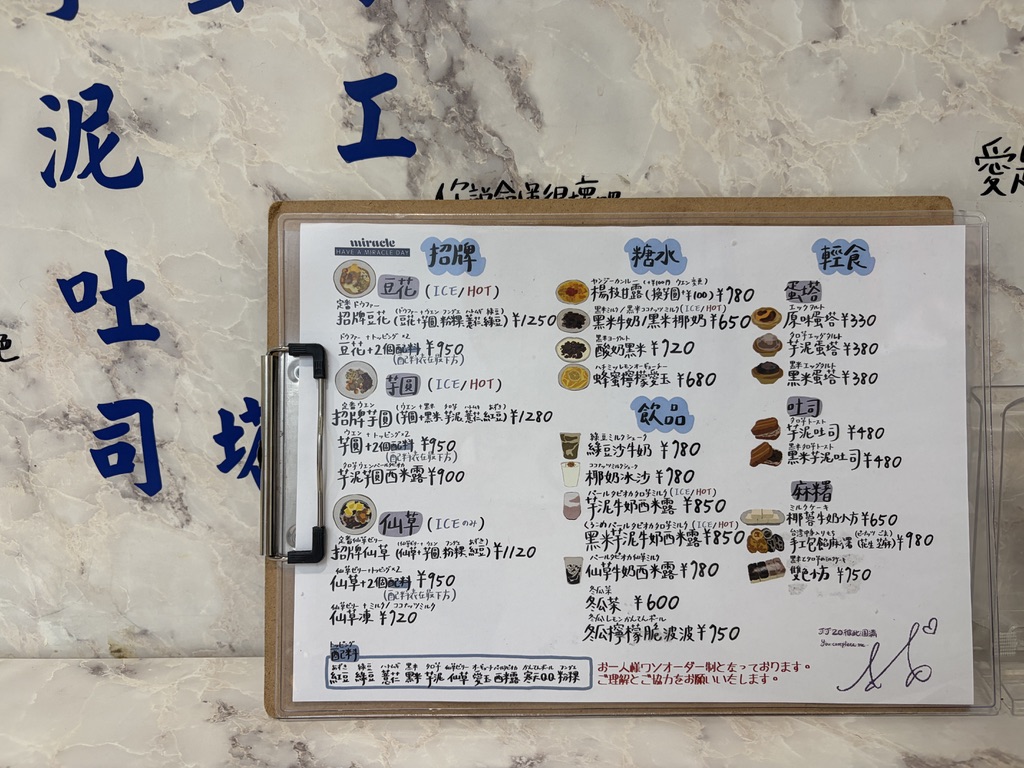 泥
吐
司
工
你說命運很壞吧
愛
miracle
HAVE A MIRACLE DAY
招牌
豆花 (ICE/HOT)
定番ドウファー
招牌豆花 (豆花+芋圓+粉粿+薏花+綠豆) ¥1250
ドウファー +トッピング×2
豆花+2個配料 ¥950
(配料在最下方)
芋圓 (ICE/HOT)
招牌芋圓 (芋圓+黑米+芋泥+薏花+紅豆) ¥1280
芋圓+2個配料 ¥950
(配料在最下方)
芋泥芋圓西米露 ¥900
仙草 (ICEのみ)
定番仙草ゼリー
招牌仙草 (仙草+芋圓+粉粿+紅豆) ¥1120
仙草ゼリー+トッピング×2
仙草+2個配料 ¥950
(配料在最下方)
仙草ゼリー+ミルク/ココナッツミルク
仙草凍 ¥720
トッピング
配料
紅豆 綠豆 薏花 黑米 芋泥 仙草 愛玉 西米露 寒天QQ 粉粿
糖水
楊枝甘露 (換芋圓+¥100) ¥780
黑米牛奶/黑米椰奶 ¥650
黒米ヨーグルト
酸奶黑米 ¥720
ハチミツレモンオーギョーチー
蜂蜜檸檬愛玉 ¥680
飲品
綠豆ミルクシェーク
綠豆沙牛奶 ¥780
ココナッツミルクシェーク
椰奶冰沙 ¥780
パールタピオカタロ芋ミルク (ICE/HOT)
芋泥牛奶西米露 ¥850
黑米芋泥牛奶西米露 ¥850
パールタピオカ仙草ミルク
仙草牛奶西米露 ¥780
冬瓜茶
冬瓜茶 ¥600
冬瓜レモンかんてんボール
冬瓜檸檬脆波波 ¥750
お一人様ワンオーダー制となっております。
ご理解とご協力をお願いいたします。
輕食
蛋塔
エッグタルト
原味蛋塔 ¥330
タロ芋エッグタルト
芋泥蛋塔 ¥380
黒米エッグタルト
黑米蛋塔 ¥380
吐司
タロ芋トースト
芋泥吐司 ¥480
黒米タロ芋トースト
黑米芋泥吐司 ¥480
麻糬
ミルクケーキ
椰蓉牛奶小方 ¥650
手工包餡麻糬 ¥780
雙色小方 ¥750
JJ20 彼此圓滿
You complete me